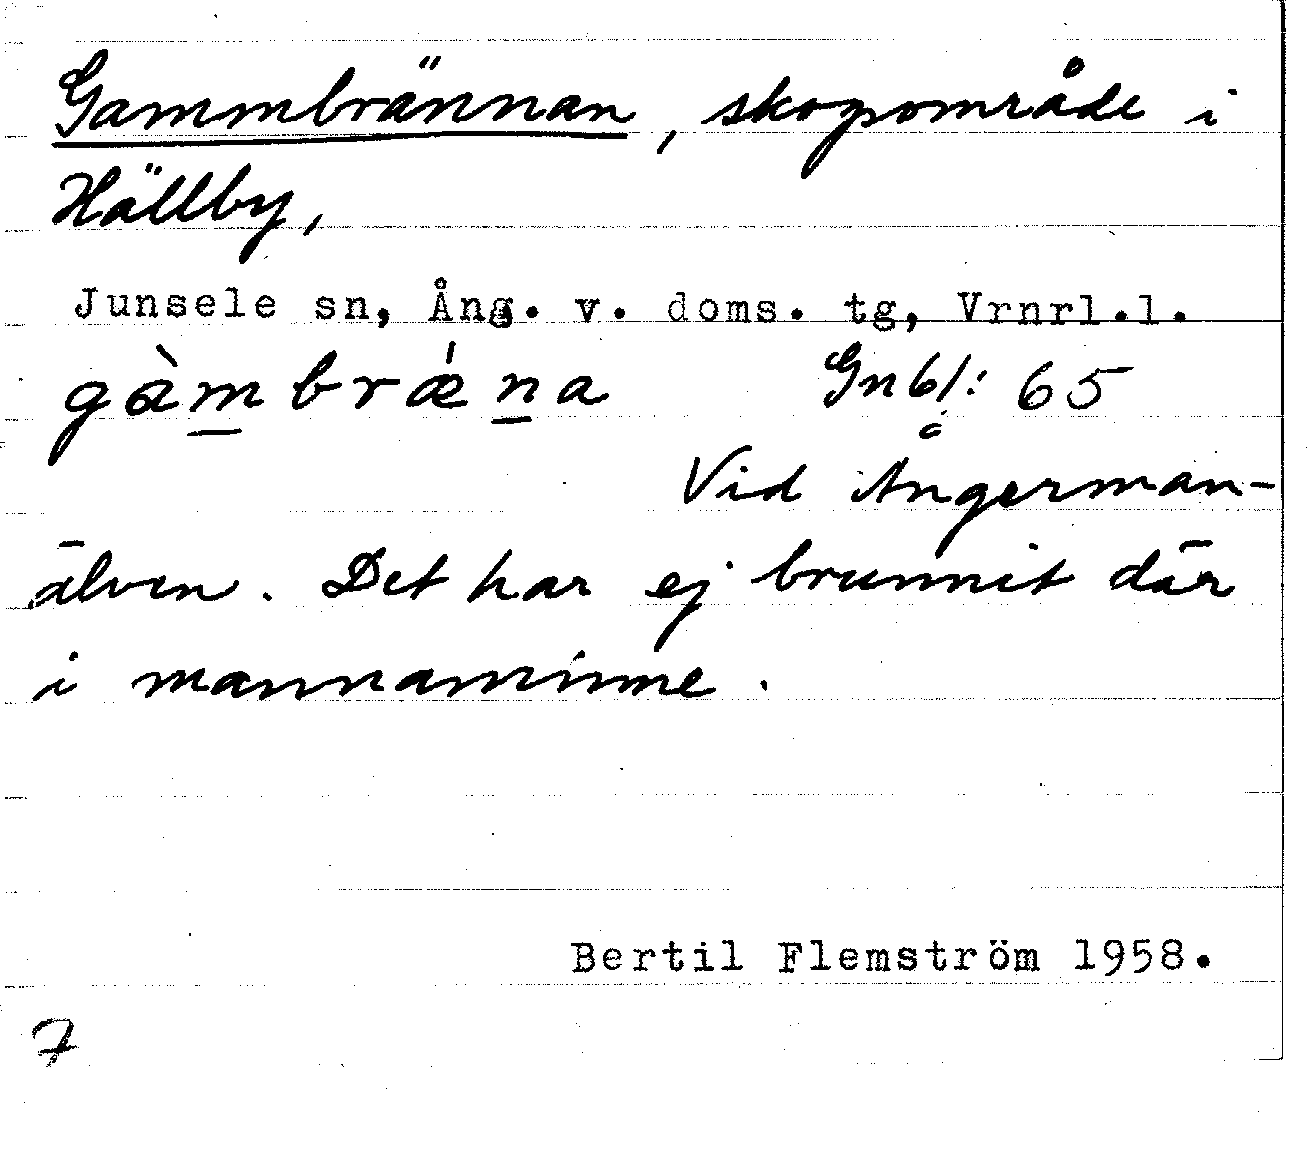 Gammbrännan, skogsområde i
Hällby,
Junsele sn, Ång. v. doms. tg, Vrnrl.l.
gàm̲brǽn̲a Gnbl: 65
Vid Ångerman-
älven. Det har ej brunnit där
i mannaminne.
Bertil Flemström 1958.
7